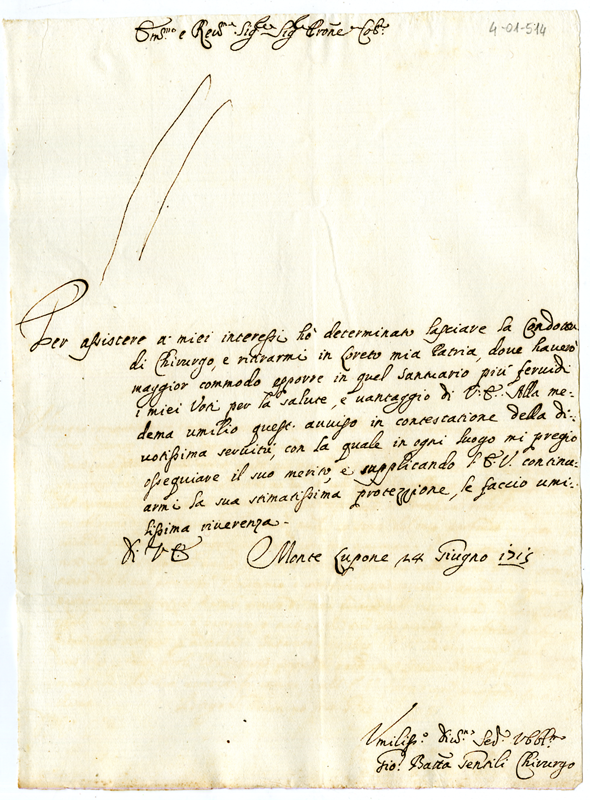 Em.mo e Rev.mo Sig.re Sig.re Prone Col.mo
4-01-514
Per assistere a' miei interessi hò determinato lasciare la Condotta
di Chirurgo, e ritirarmi in Loreto mia Patria, dove haverò
maggior commodo esporre in quel Santuario più fervidi
i miei Voti per la salute, e vantaggio di V. E. Alla me-
dema umilio quest' avviso in contestazione della di-
votissima servitù, con la quale in ogni luogo mi pregio
ossequiare il suo merito, e supplicando l'E. V. continu-
armi la sua stimatissima protezzione, le faccio umi-
lissima riverenza.
Di V. E.
Monte Lupone 24 Giugno 1715
Umiliss.o Div.mo Ser.
Gio. Batta Gentili Chirurgo